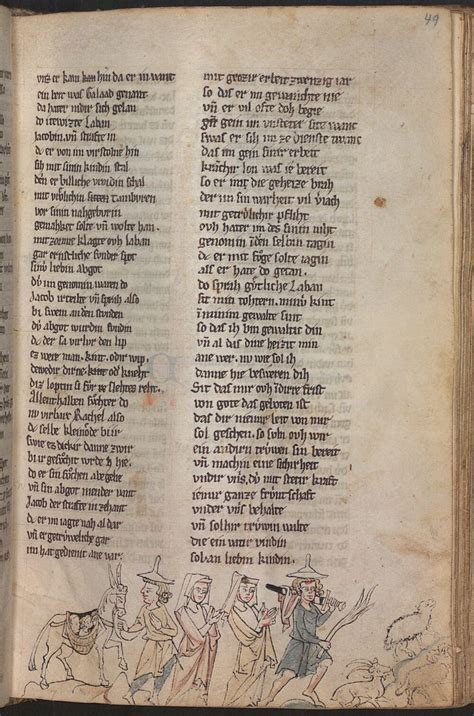 vnz er kam han hin da er in vant
ein beit was Galaad genant
da hater nidir sich gelan
do itewizte Laban
Jacobin vn̄ strafte in
dc er von im virstolne hin
sih mit sinin kindin stal
den er billiche vroidin schal
mit vrolichin seitin tamburen
vor sinin nahgeburin
gemahhet solte vn̄ wolte han.
mit zorne klagte ovh Laban
gar ernstliche sundir spot
sinv liebin abgot
dv im genomin waren do
Jacob virteilte vn̄ sprah also
bi swem an den stunden
dv abgot wurdin fundin
dc der sa virlvr den lip
ez were man. kint. odir wip.
dewedir dirne. kint od kneht
diz loptin si fvr ze slehtes reht.
Allenthalben suchter do
nv virbarc Rachel also
dc selbe kleinode bi ir
swie ez dickir danne zwir
bi ir gesucht wrde hie.
do er sin suchen abegelie
vn̄ sin abgot niender vant
Jacob der strafte in zehant
dc er im iagte nah al dar
vn̄ er getrvweliche gar
im hat gedienit ane var
49
mit grozir erbeit zwenzig iar
so das er im gewanchte nie
vn̄ er vil ofte doh begie
gein im vnsteter sitte want
swas er sih im ze dienste want
das im gein sinir erbeit
kranchir lon was ie bereit
so er mit die geheize brah
der im sin warheit vil virjah
mit getrvlichir pfliht
ovh hater im des sinin niht
genomin in den selbin tagin
dc er mit fuge solte iagin
als er hate do getan.
do sprah gutliche Laban
sit min tohtern. minv kint
in minim gewalte sint
so das ih bin gewaltic din
vn̄ al das dine heizit min
ane wer. nv wie sol ih
danne hie besweren dih
Sit das mir ovh in dirre frist
von gote das geboten ist
das dir niemer leit von mir
sol geschehen. so suln ovh wir
ein andirn trvwen sin bereit
vn̄ machin eine sichirheit
vndir vns, dv mit steter kraft
iemir ganze frvntschaft
vnder vns behalte
vn̄ solhir trvwin walte
die ein vatir vindin
sol an liebin kindin.